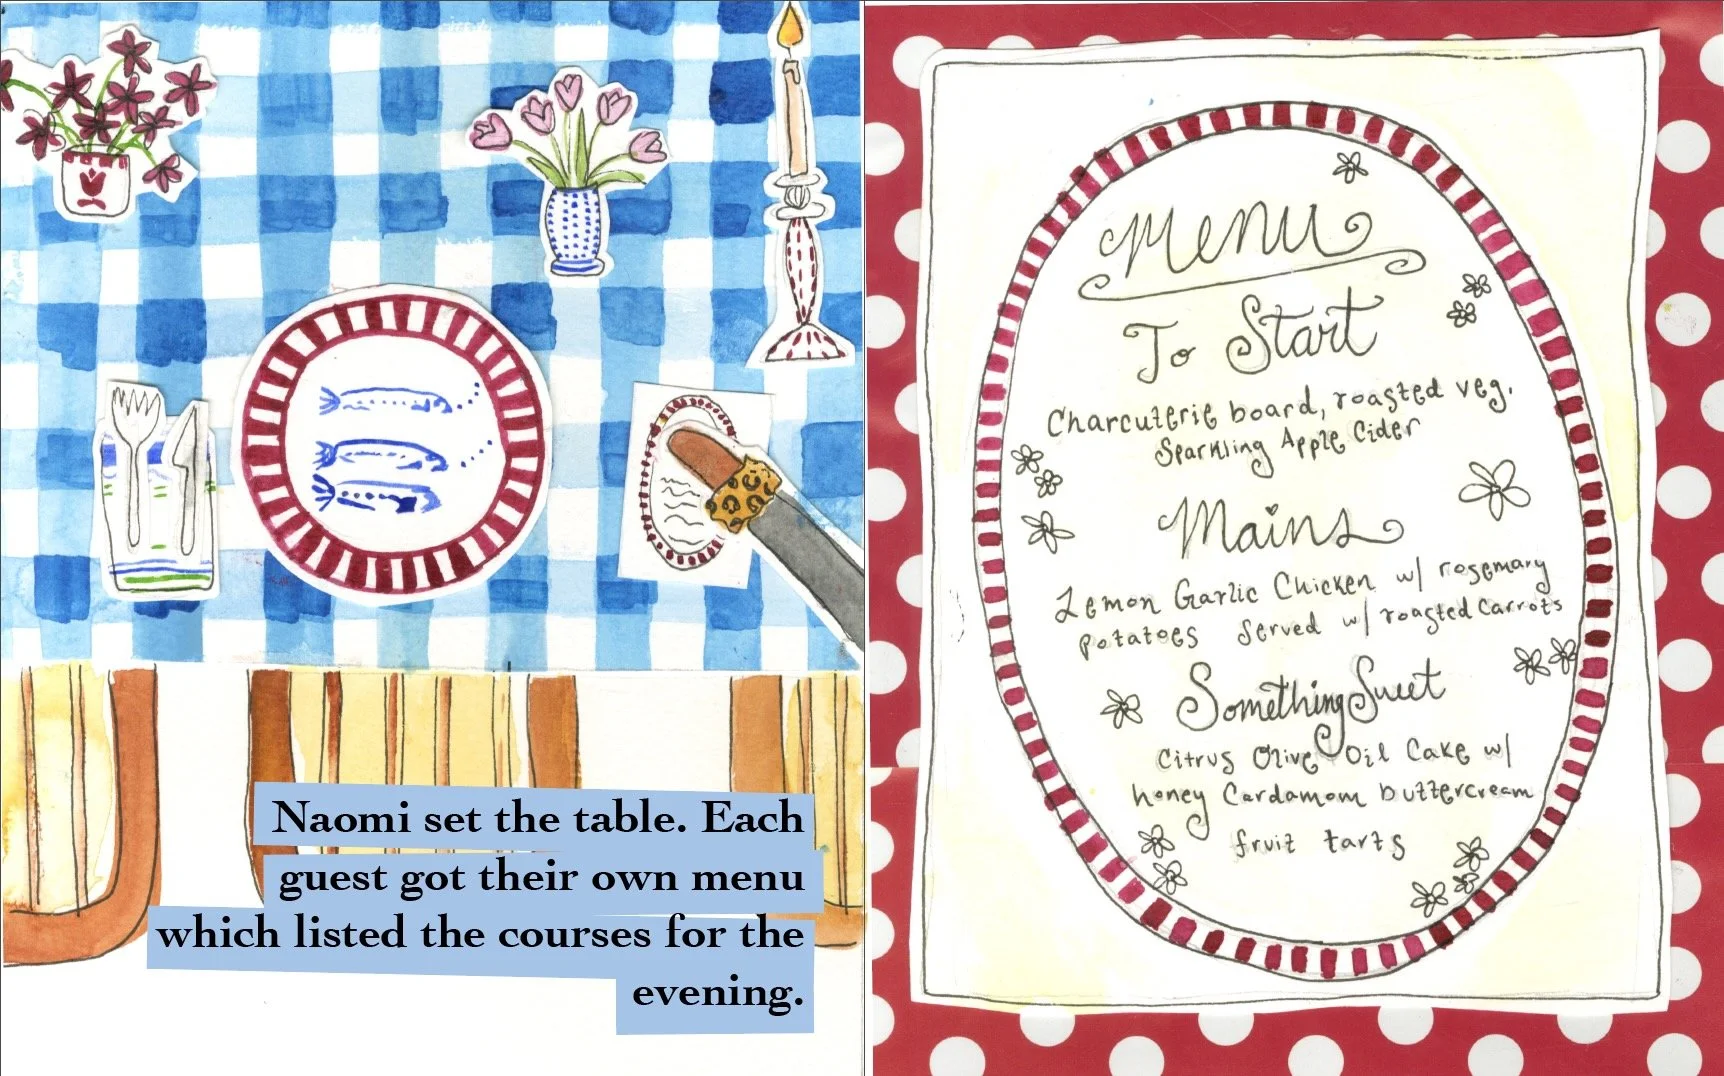 Naomi set the table. Each
guest got their own menu
which listed the courses for the
evening.
Menu
To Start
Charcuterie board, roasted veg.
Sparkling Apple Cider
Mains
Lemon Garlic Chicken w/ rosemary
potatoes served w/ roasted carrots
Something Sweet
Citrus Olive Oil Cake w/
honey Cardamom buttercream
fruit tarts